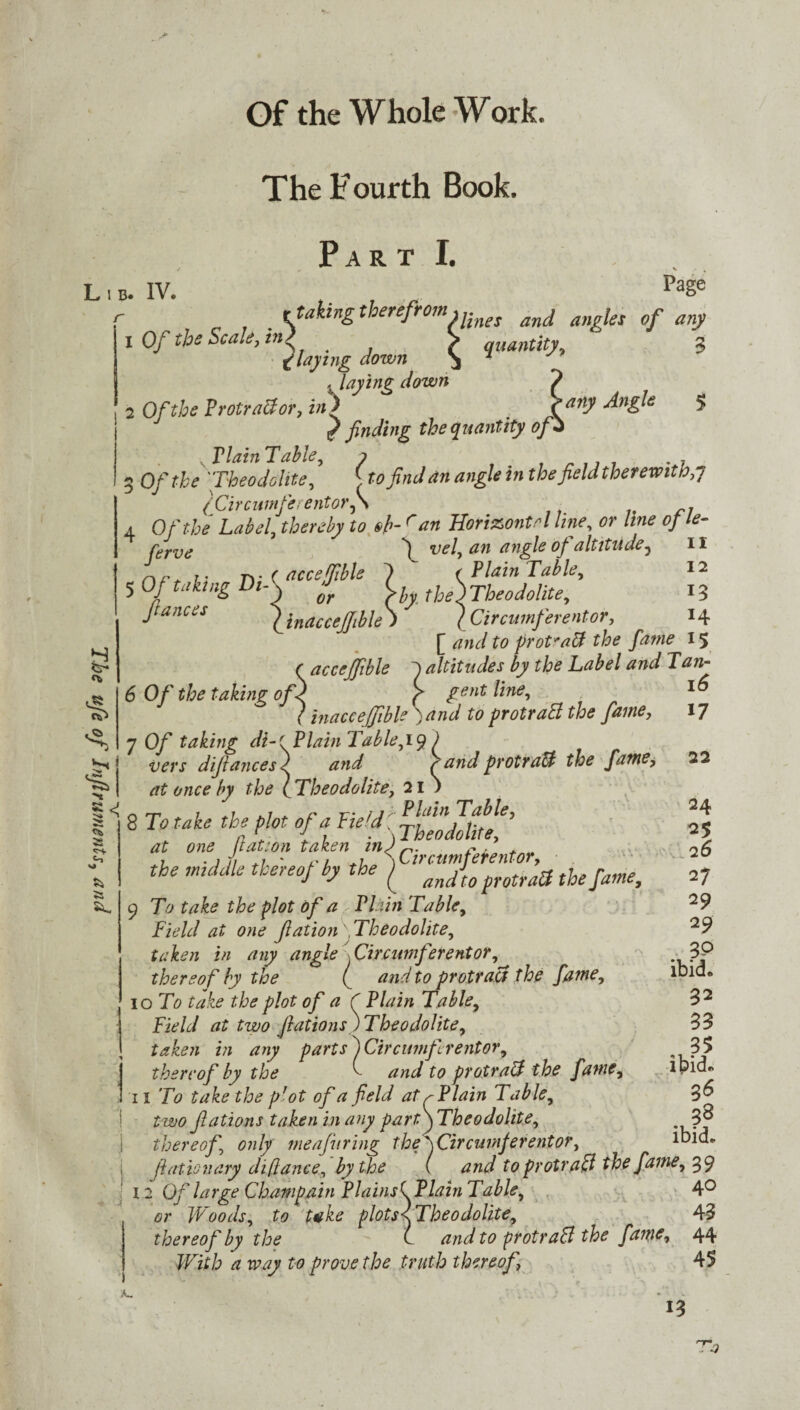 Of the Whole Work.
The Fourth Book.
PART I.
LIB. IV. Page
1 Of the Scale, in { taking therefrom / laying down } lines and angles of any quantity, 3
2 Of the Protractor, in { laying down / finding the quantity of } any Angle 5
3 Of the { Plain Table, / Theodolite, / Circumferentor, } to find an angle in the field therewith, 7
4 Of the Label, thereby to ob- { an Horizontal line, or line of le-
serve vel, an angle of altitude, 11
5 Of taking Di- { accessible } { Plain Table, 12
or by the Theodolite, 13
stances { inaccessible } { Circumferentor, 14
[ and to protract the same 15
{ accessible } altitudes by the Label and Tan-
6 Of the taking of gent line, 16
{ inaccessible } and to protract the same, 17
7 Of taking di- { Plain Table, 19 }
vers distances and and protract the same, 22
at once by the { Theodolite, 21 }
8 To take the plot of a Field { Plain Table, 24
Theodolite, 25
at one station taken in
Circumferentor, 26
the middle thereof by the and to protract the same, 27
9 To take the plot of a Plain Table, 29
Field at one station Theodolite, 29
taken in any angle Circumferentor, 30
thereof by the and to protract the same, ibid.
10 To take the plot of a Plain Table, 32
Field at two stations Theodolite, 33
taken in any parts Circumferentor, 35
thereof by the and to protract the same, ibid.
11 To take the plot of a field at Plain Table, 36
two stations taken in any part Theodolite, 38
thereof, only measuring the Circumferentor, ibid.
stationary distance, by the and to protract the same, 39
12 Of large Champain Plains Plain Table, 40
or Woods, to take plots Theodolite, 43
thereof by the and to protract the same, 44
With a way to prove the truth thereof, 45
The use of Instruments, and
13
To